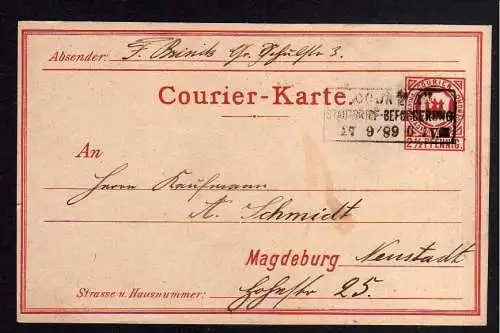 Absender: F. Schulstr 3.
COURIER
Courier-Karte.
STADTBRIEF-BEFÖRDERUNG
27 9/89
2½ PFENNIG
An
Herrn Kaufmann
A. Schmidt
Magdeburg Neustadt
Strasse u. Hausnummer: Hohestr 25.